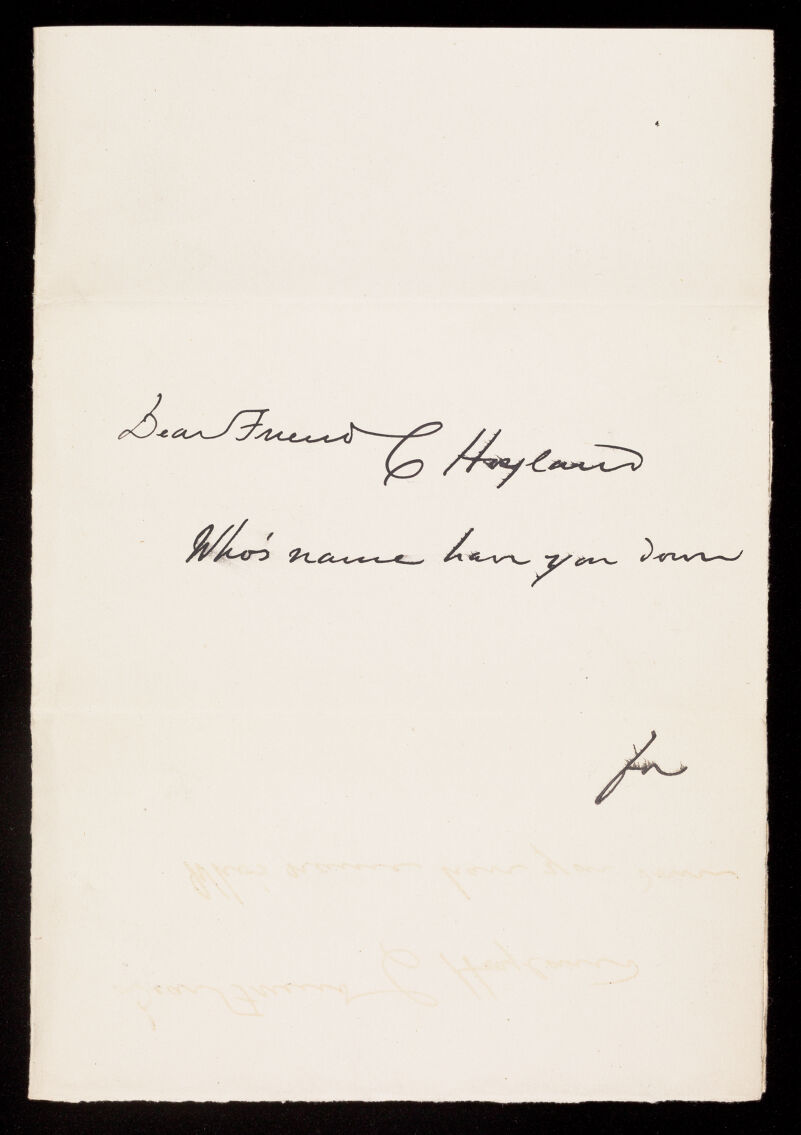 Dear Friend C Hoyland
Who's name have you down
for